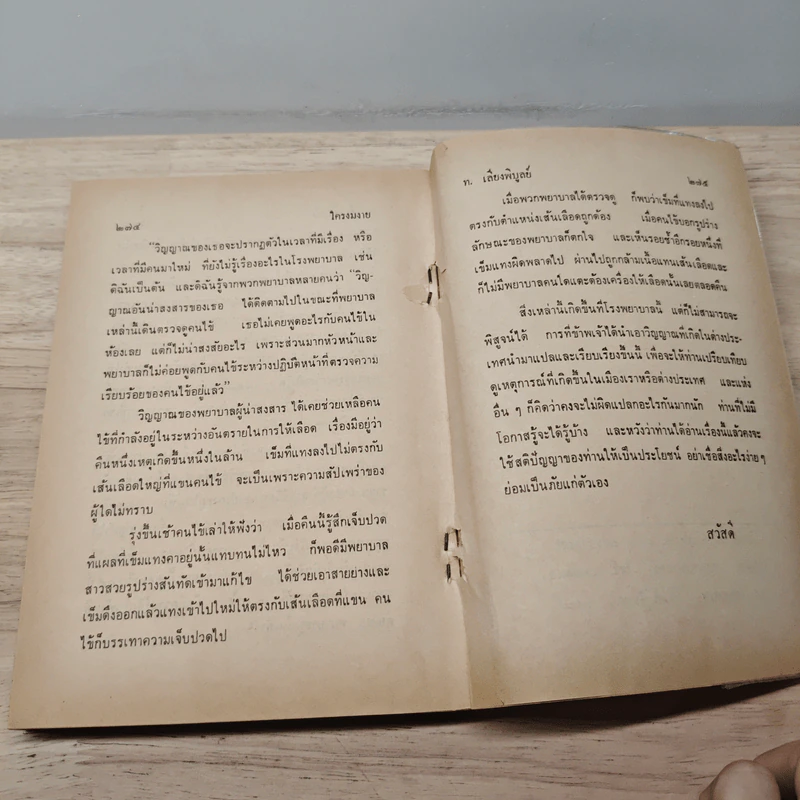 ๒๗๔
ใครงมงาย
“วิญญาณของเธอจะปรากฏตัวในเวลาที่มีเรื่อง หรือ
เวลาที่มีคนมาใหม่ ที่ยังไม่รู้เรื่องอะไรในโรงพยาบาล เช่น
ดิฉันเป็นต้น และดิฉันรู้จากพวกพยาบาลหลายคนว่า “วิญ-
ญาณอันน่าสงสารของเธอ ได้ติดตามไปในขณะที่พยาบาล
เหล่านี้เดินตรวจดูคนไข้ เธอไม่เคยพูดอะไรกับคนไข้ใน
ห้องเลย แต่ก็ไม่น่าสงสัยอะไร เพราะส่วนมากหัวหน้าและ
พยาบาลก็ไม่ค่อยพูดกับคนไข้ระหว่างปฏิบัติหน้าที่ตรวจความ
เรียบร้อยของคนไข้อยู่แล้ว”
วิญญาณของพยาบาลผู้น่าสงสาร ได้เคยช่วยเหลือคน
ไข้ที่กำลังอยู่ในระหว่างอันตรายในการให้เลือด เรื่องมีอยู่ว่า
คืนหนึ่งเหตุเกิดขึ้นหนึ่งในล้าน เข็มที่แทงลงไปไม่ตรงกับ
เส้นเลือดใหญ่ที่แขนคนไข้ จะเป็นเพราะความสัปเพร่าของ
ผู้ใดไม่ทราบ
รุ่งขึ้นเช้าคนไข้เล่าให้ฟังว่า เมื่อคืนนี้รู้สึกเจ็บปวด
ที่แผลที่เข็มแทงคาอยู่นั้นแทบทนไม่ไหว ก็พอดีมีพยาบาล
สาวสวยรูปร่างสันทัดเข้ามาแก้ไข ได้ช่วยเอาสายยางและ
เข็มดึงออกแล้วแทงเข้าไปใหม่ให้ตรงกับเส้นเลือดที่แขน คน
ไข้ก็บรรเทาความเจ็บปวดไป
ท. เลียงพิบูลย์
๒๗๕
เมื่อพวกพยาบาลได้ตรวจดู ก็พบว่าเข็มที่แทงลงไป
ตรงกับตำแหน่งเส้นเลือดถูกต้อง เมื่อคนไข้บอกรูปร่าง
ลักษณะของพยาบาลก็ตกใจ และเห็นรอยช้ำอีกรอยหนึ่งที่
เข็มแทงผิดพลาดไป ผ่านไปถูกกล้ามเนื้อแทนเส้นเลือดและ
ก็ไม่มีพยาบาลคนใดแตะต้องเครื่องให้เลือดนั้นเลยตลอดคืน
สิ่งเหล่านี้เกิดขึ้นที่โรงพยาบาลนี้ แต่ก็ไม่สามารถจะ
พิสูจน์ได้ การที่ข้าพเจ้าได้นำเอาวิญญาณที่เกิดในต่างประ-
เทศนำมาแปลและเรียบเรียงขึ้นนี้ เพื่อจะให้ท่านเปรียบเทียบ
ดูเหตุการณ์ที่เกิดขึ้นในเมืองเราหรือต่างประเทศ และแห่ง
อื่น ๆ ก็คิดว่าคงจะไม่ผิดแปลกอะไรกันมากนัก ท่านที่ไม่มี
โอกาสรู้จะได้รู้บ้าง และหวังว่าท่านได้อ่านเรื่องนี้แล้วคงจะ
ใช้สติปัญญาของท่านให้เป็นประโยชน์ อย่าเชื่อสิ่งอะไรง่าย ๆ
ย่อมเป็นภัยแก่ตัวเอง
สวัสดี